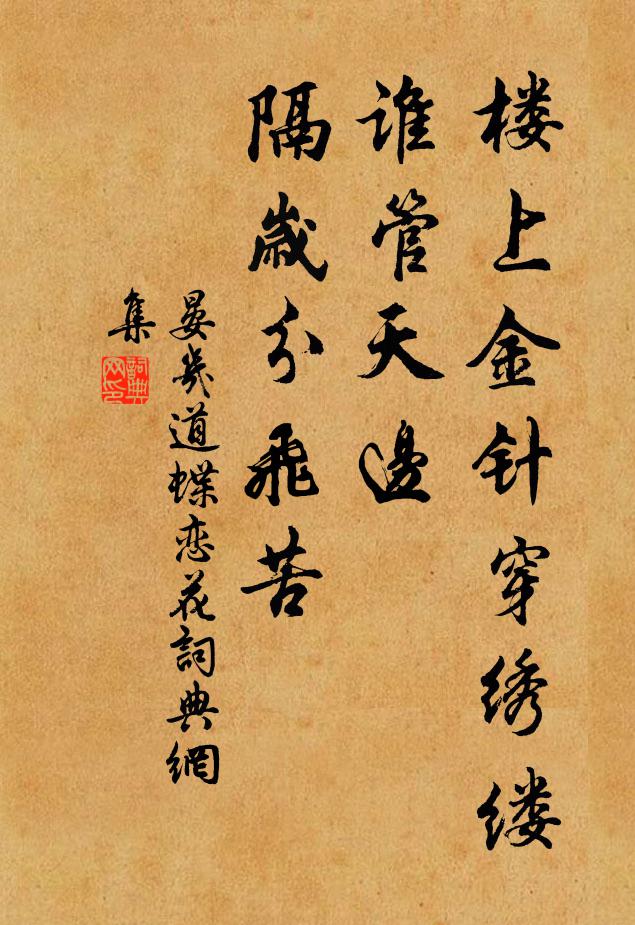 楼上金针穿绣缕
谁管天邊
隔歳分飛苦
晏幾道蝶恋花詞典網
集
詞典
网印